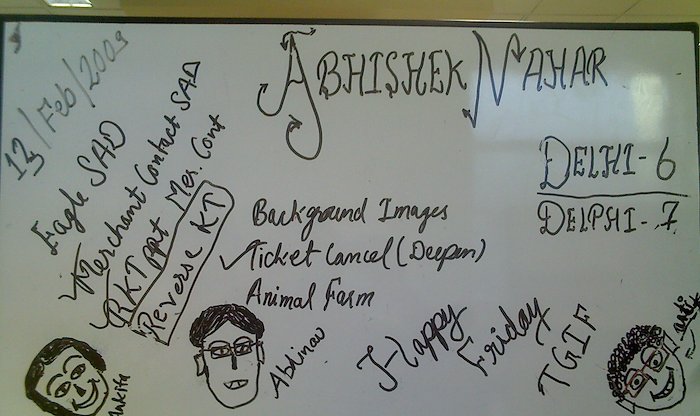 13/Feb/2009
ABHISHEK NAHAR
Eagle SAD
Merchant Contact SAD
RKT PPt Mer. Cont
Reverse KT
DELHI-6
DELPHI-7
Background Images
Ticket Cancel (Deepen)
Animal Farm
Happy Friday
TGIF
Ankita
Abhinav